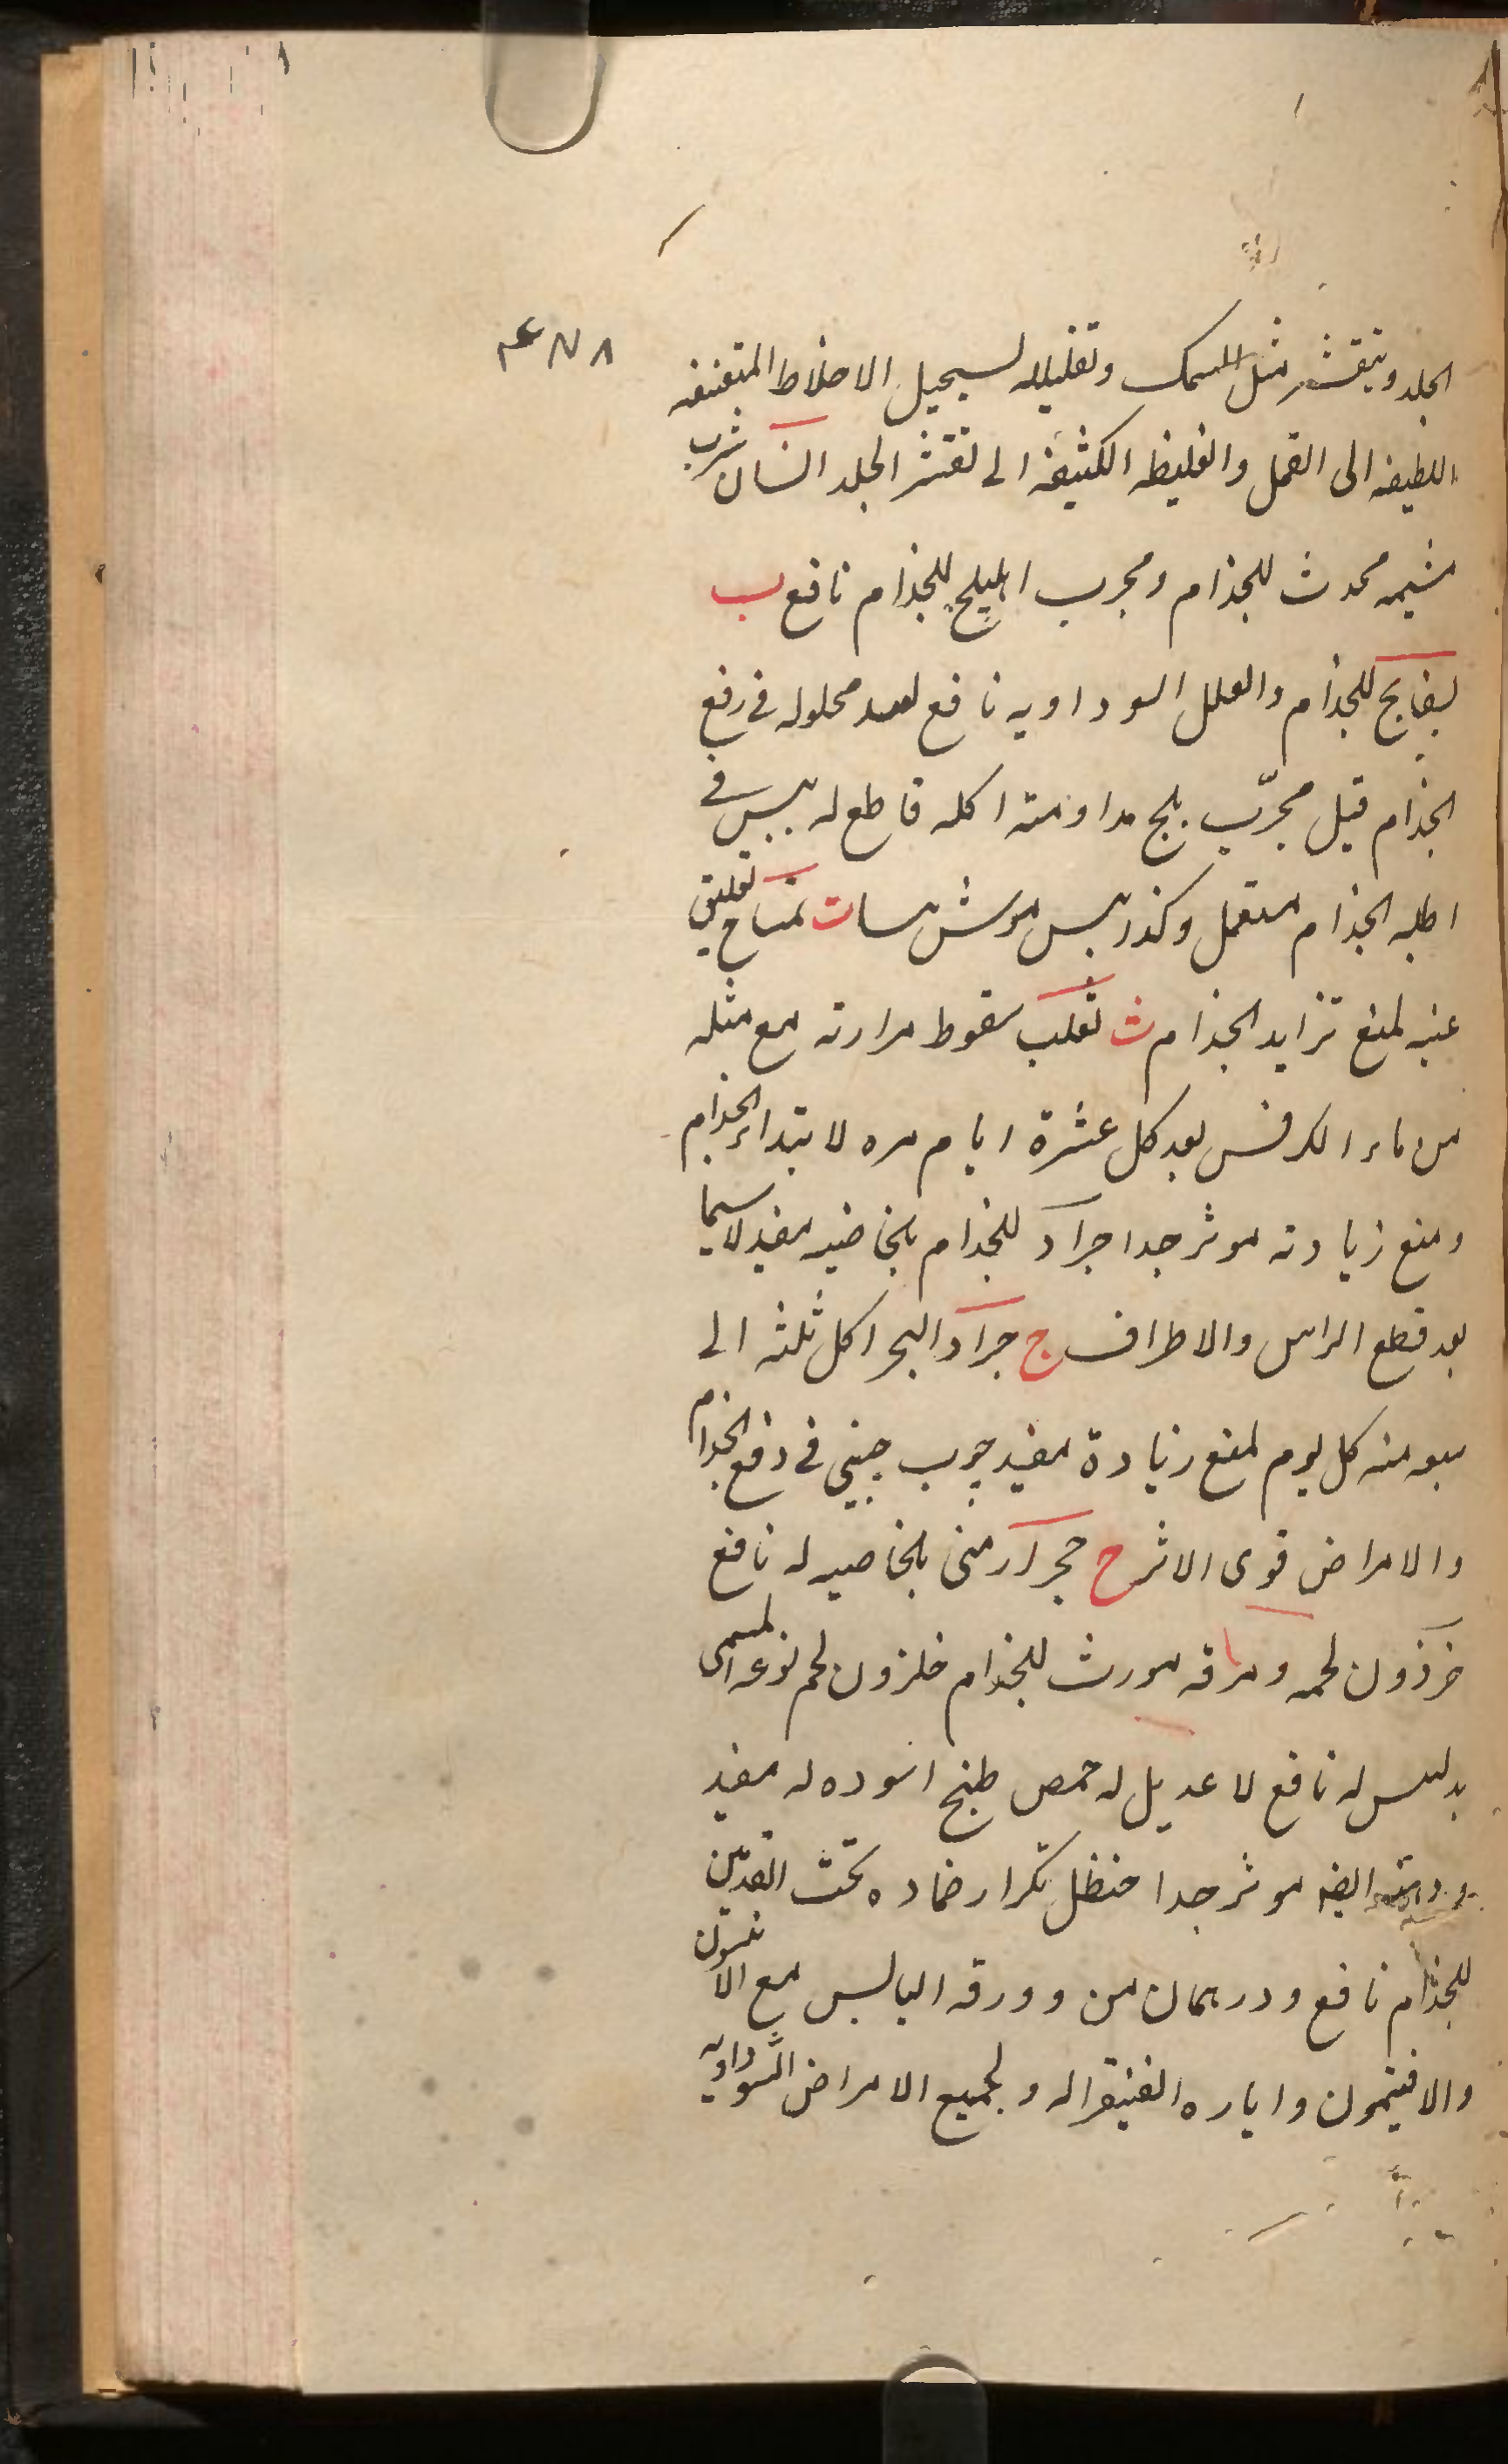 ۴۷۸
الجلد ويتقشر مثل السمك وتقليله يستحيل الاخلاط المتعفنه
اللطيفه الى القمل والغليظه الكثيفه الى تقشر الجلد انسان شرب
مشيمه محدث للجذام ومجرب اهليلج للجذام نافع ب
بسفايج للجذام والعلل السوداويه نافع محلوله في رفع
الجذام قيل مجرّب بلح مداومته اكله قاطع له بيش في
اطليه الجذام مستعمل وكذا بيش موش ت تمساح تعليق
عينه لمنع تزايد الجذام ث ثعلب سقوط مرارته مع مثله
من ماء الكرفس بعد كل عشرة ايام مره لابتداء الجذام
ومنع زيادته موثر جدا جراد للجذام بالخاصيه مفيد لاسيما
بعد قطع الراس والاطراف ج جراد البحر اكل ثلثه الى
سبعه منه كل يوم لمنع زيادة مفيد چوب چيني في دفع الجذام
والامراض قوى الاثر ح حجر ارمنى بالخاصيه له نافع
حرذون لحمه ومرقه مورث للجذام حلزون لحم نوعه المسمى
له نافع لا عديل له حمص طبخ اسوده له مفيد
ايضا موثر جدا حنظل تكرار ضماده تحت القدمين
للجذام نافع ودرهمان من وورقه اليابس مع الانيسون
والافتيمون واياره الفيقرا له ولجميع الامراض السوداويه